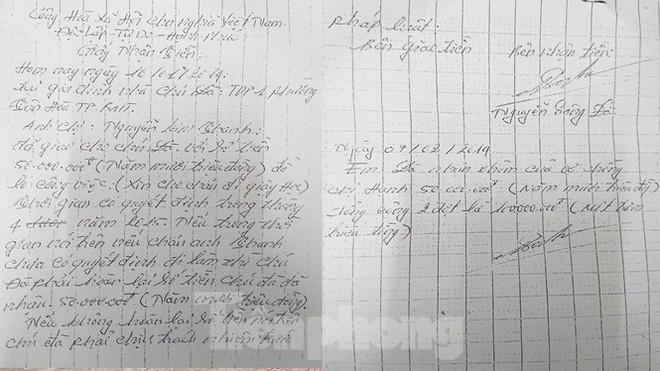 Cộng Hoà Xã Hội Chủ nghĩa Việt Nam
Độc lập - Tự Do - Hạnh Phúc
Giấy Nhận Tiền:
Hôm nay ngày 16/01/2014:
tại gia đình nhà chú Đô: TDP 1 phường
TP. BMT.
Anh chị: Nguyễn Khánh:
đã giao cho chú Đô với số tiền
50.000.000đ (Năm mươi triệu đồng) để
lo công việc. (Xin cho cháu đi giảng Học)
thời gian có quyết định trong tháng
4 năm 2015. Nếu trong thời
gian nói trên nếu cháu anh Khanh
chưa có quyết định đi làm thì chú
Đô phải hoàn lại số tiền chú đã
nhận. 50.000.000đ (Năm mươi triệu đồng).
Nếu không hoàn lại số tiền nói trên
chú đô phải chịu trách nhiệm trước
pháp luật:
Bên giao tiền
Bên nhận tiền:
Nguyễn Đô
Ngày 07/02/2014
Em Đô nhận thêm của vợ chồng
chị Hạnh 50.000.000đ (Năm mươi triệu đồng)
tổng cộng 2 đợt là 100.000.000đ (Một trăm
triệu đồng)
tienphong